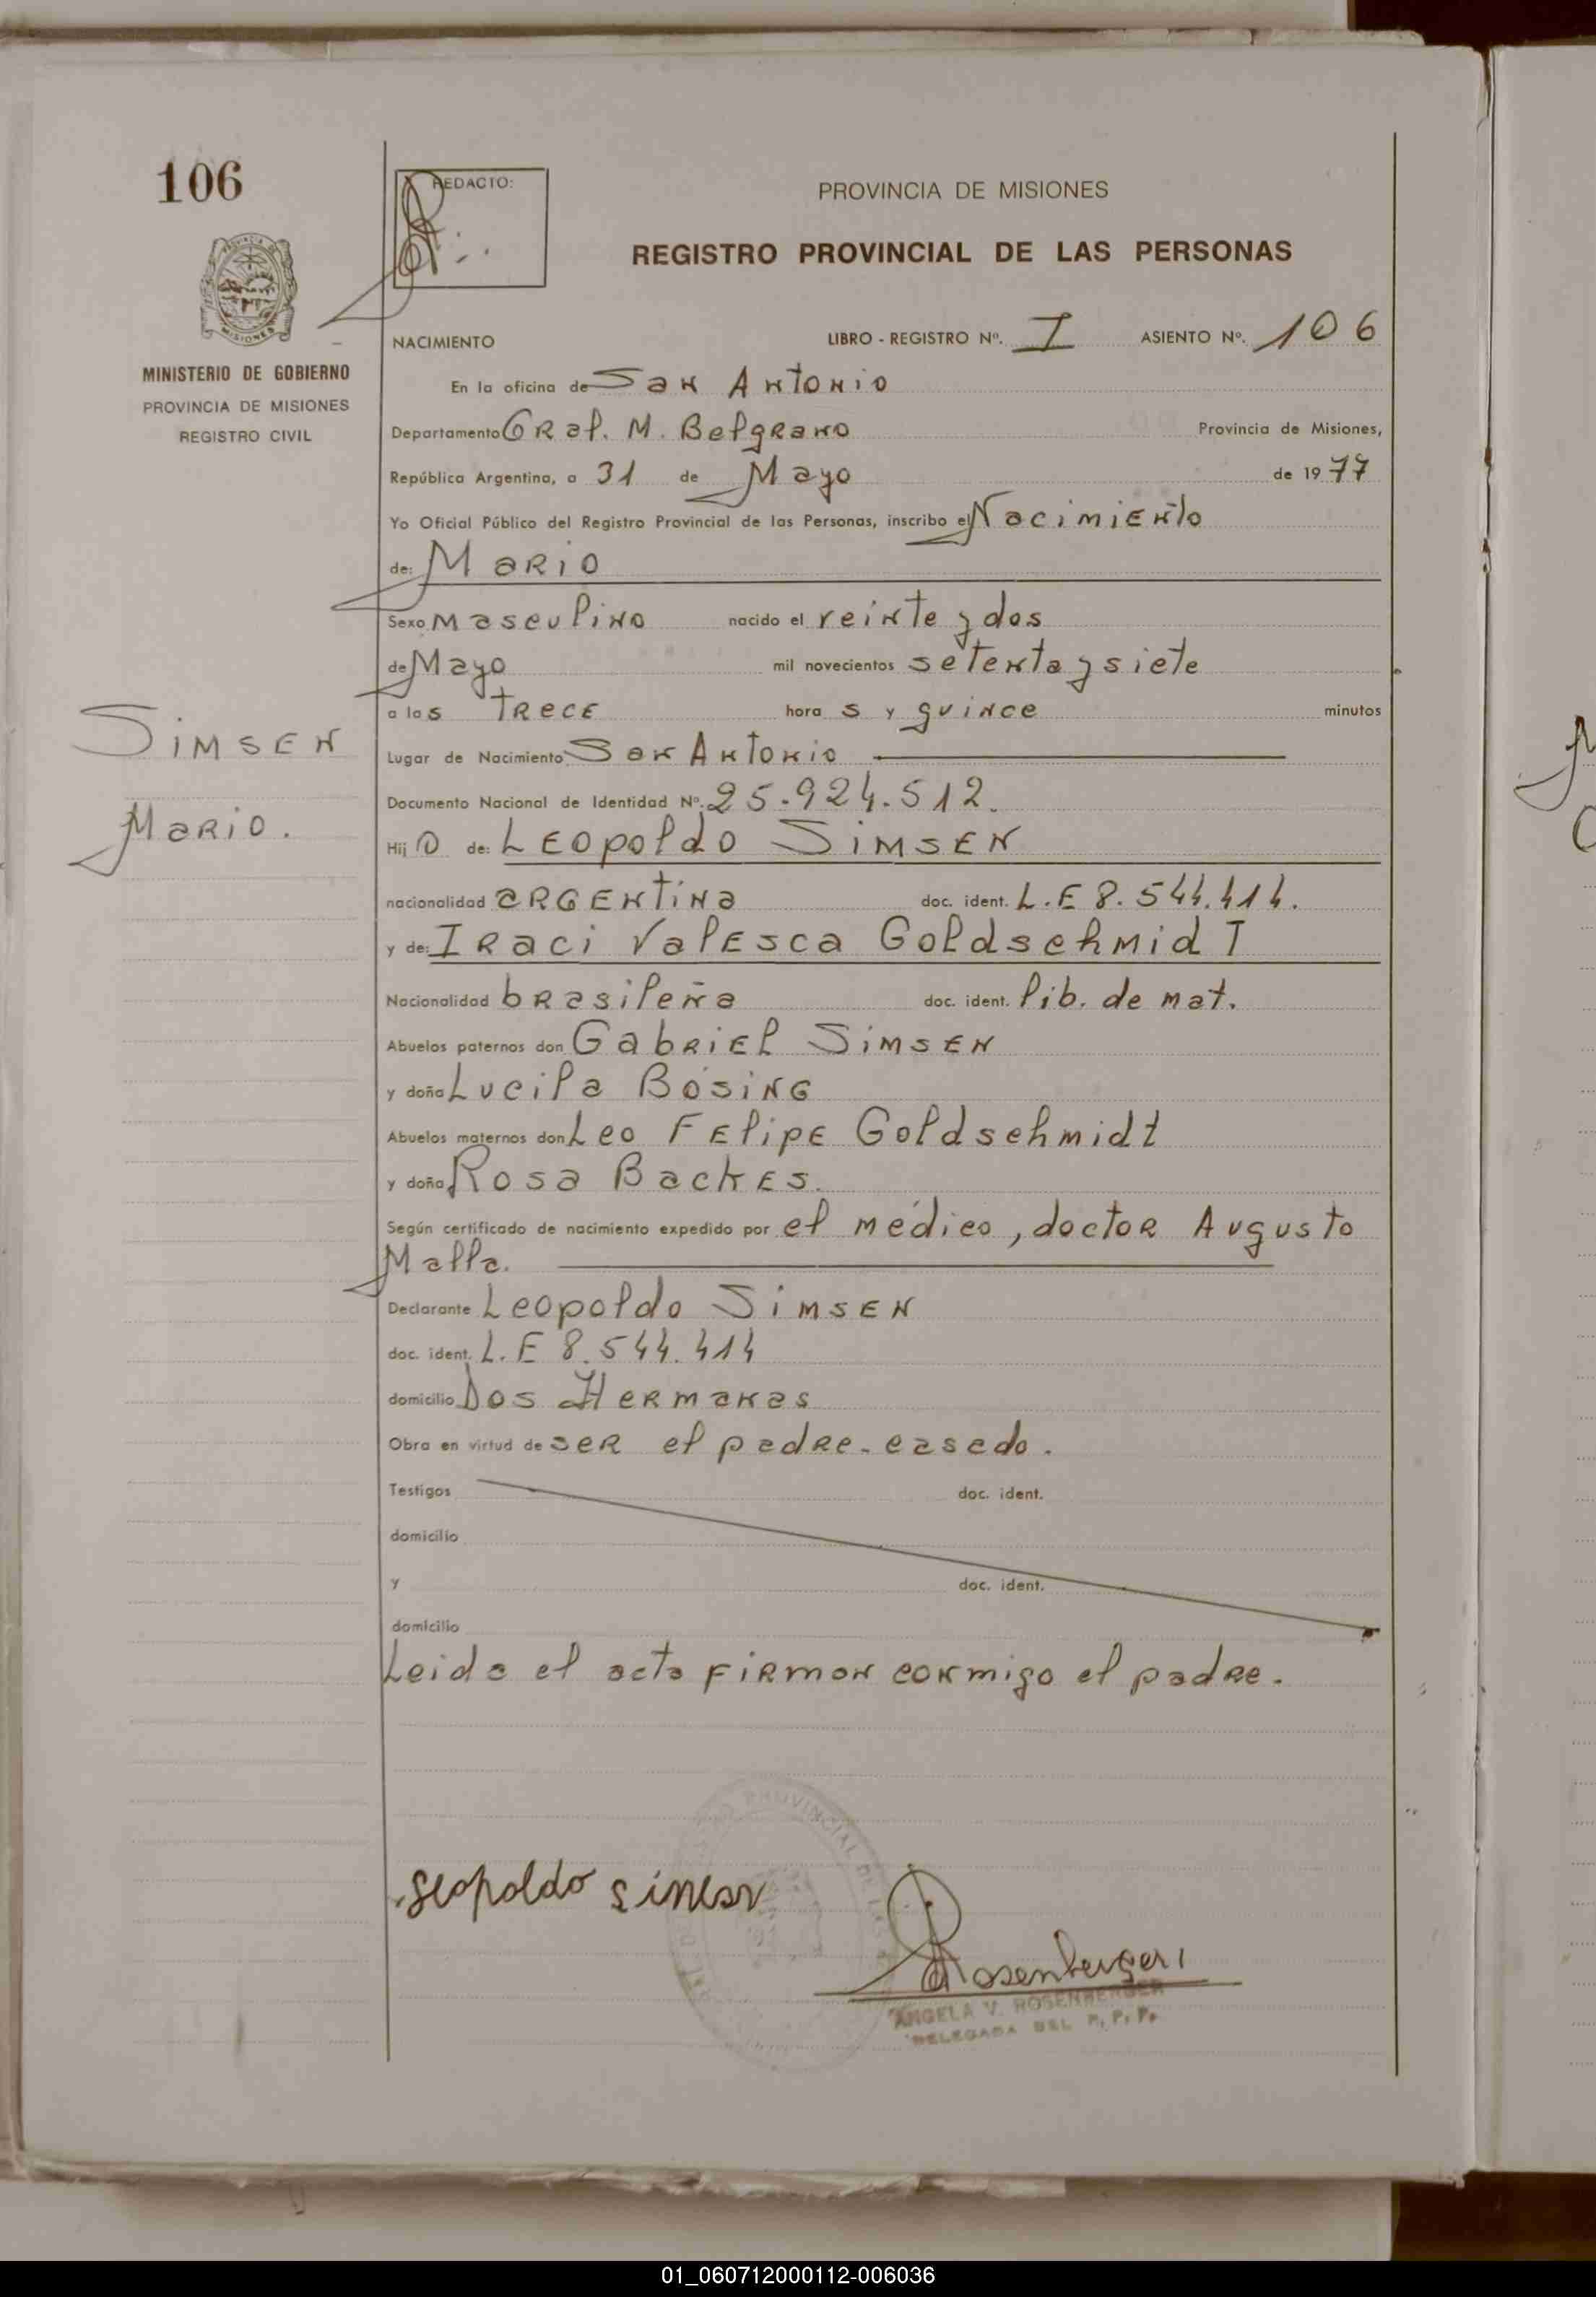 106
REDACTO:
PROVINCIA DE MISIONES
REGISTRO PROVINCIAL DE LAS PERSONAS
MISIONES
MINISTERIO DE GOBIERNO
PROVINCIA DE MISIONES
REGISTRO CIVIL
NACIMIENTO LIBRO - REGISTRO Nº. I ASIENTO Nº. 106
En la oficina de San Antonio
Departamento Gral. M. Belgrano Provincia de Misiones,
República Argentina, a 31 de Mayo de 1977
Yo Oficial Público del Registro Provincial de las Personas, inscribo el Nacimiento
de: Mario
Sexo masculino nacido el veinte y dos
de Mayo mil novecientos setenta y siete
a las trece horas y quince minutos
Simsen
Mario.
Lugar de Nacimiento San Antonio
Documento Nacional de Identidad Nº. 25.924.512.
Hijo de: Leopoldo Simsen
nacionalidad argentina doc. ident. L.E 8.544.414.
y de: Iraci Valesca Goldschmidt
Nacionalidad brasileña doc. ident. lib. de mat.
Abuelos paternos don Gabriel Simsen
y doña Lucila Bösing
Abuelos maternos don Leo Felipe Goldschmidt
y doña Rosa Backes.
Según certificado de nacimiento expedido por el médico, doctor Augusto
Malla.
Declarante Leopoldo Simsen
doc. ident. L.E 8.544.414
domicilio Dos Hermanas
Obra en virtud de ser el padre-casado.
Testigos doc. ident.
domicilio
y doc. ident.
domicilio
Leida el acta firman conmigo el padre.
Leopoldo
Rosenberger
ANGELA V. ROSENBERGER
DELEGADA DEL R. P. P.
01_060712000112-006036